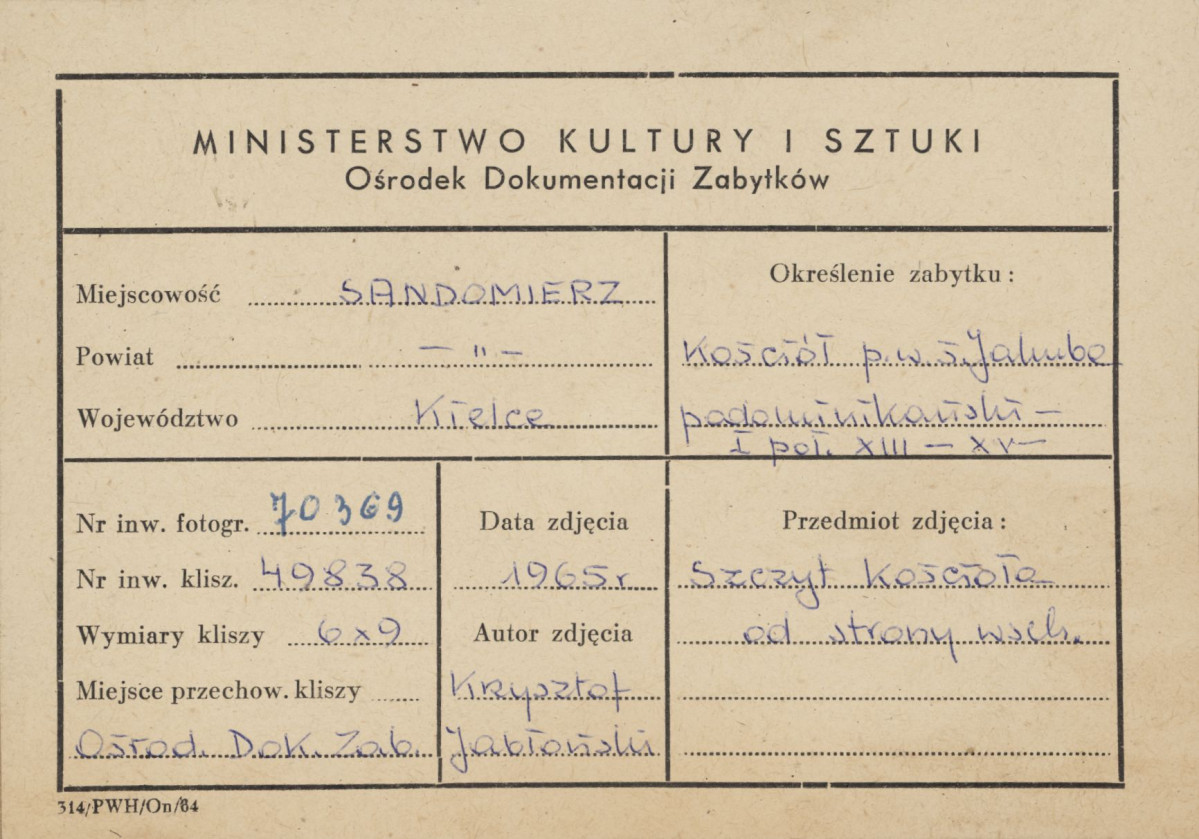 MINISTERSTWO KULTURY I SZTUKI
Ośrodek Dokumentacji Zabytków
Miejscowość SANDOMIERZ
Powiat — " —
Województwo Kielce
Określenie zabytku:
Kościół p.w. ś. Jakuba
podominikański —
I poł. XIII — XV —
Nr inw. fotogr. 70369
Nr inw. klisz. 49838
Wymiary kliszy 6x9
Miejsce przechow. kliszy
Ośrod. Dok. Zab.
Data zdjęcia
1965 r
Autor zdjęcia
Krzysztof
Jabłoński
Przedmiot zdjęcia:
Szczyt Kościoła
od strony wsch.
314/PWH/On/64